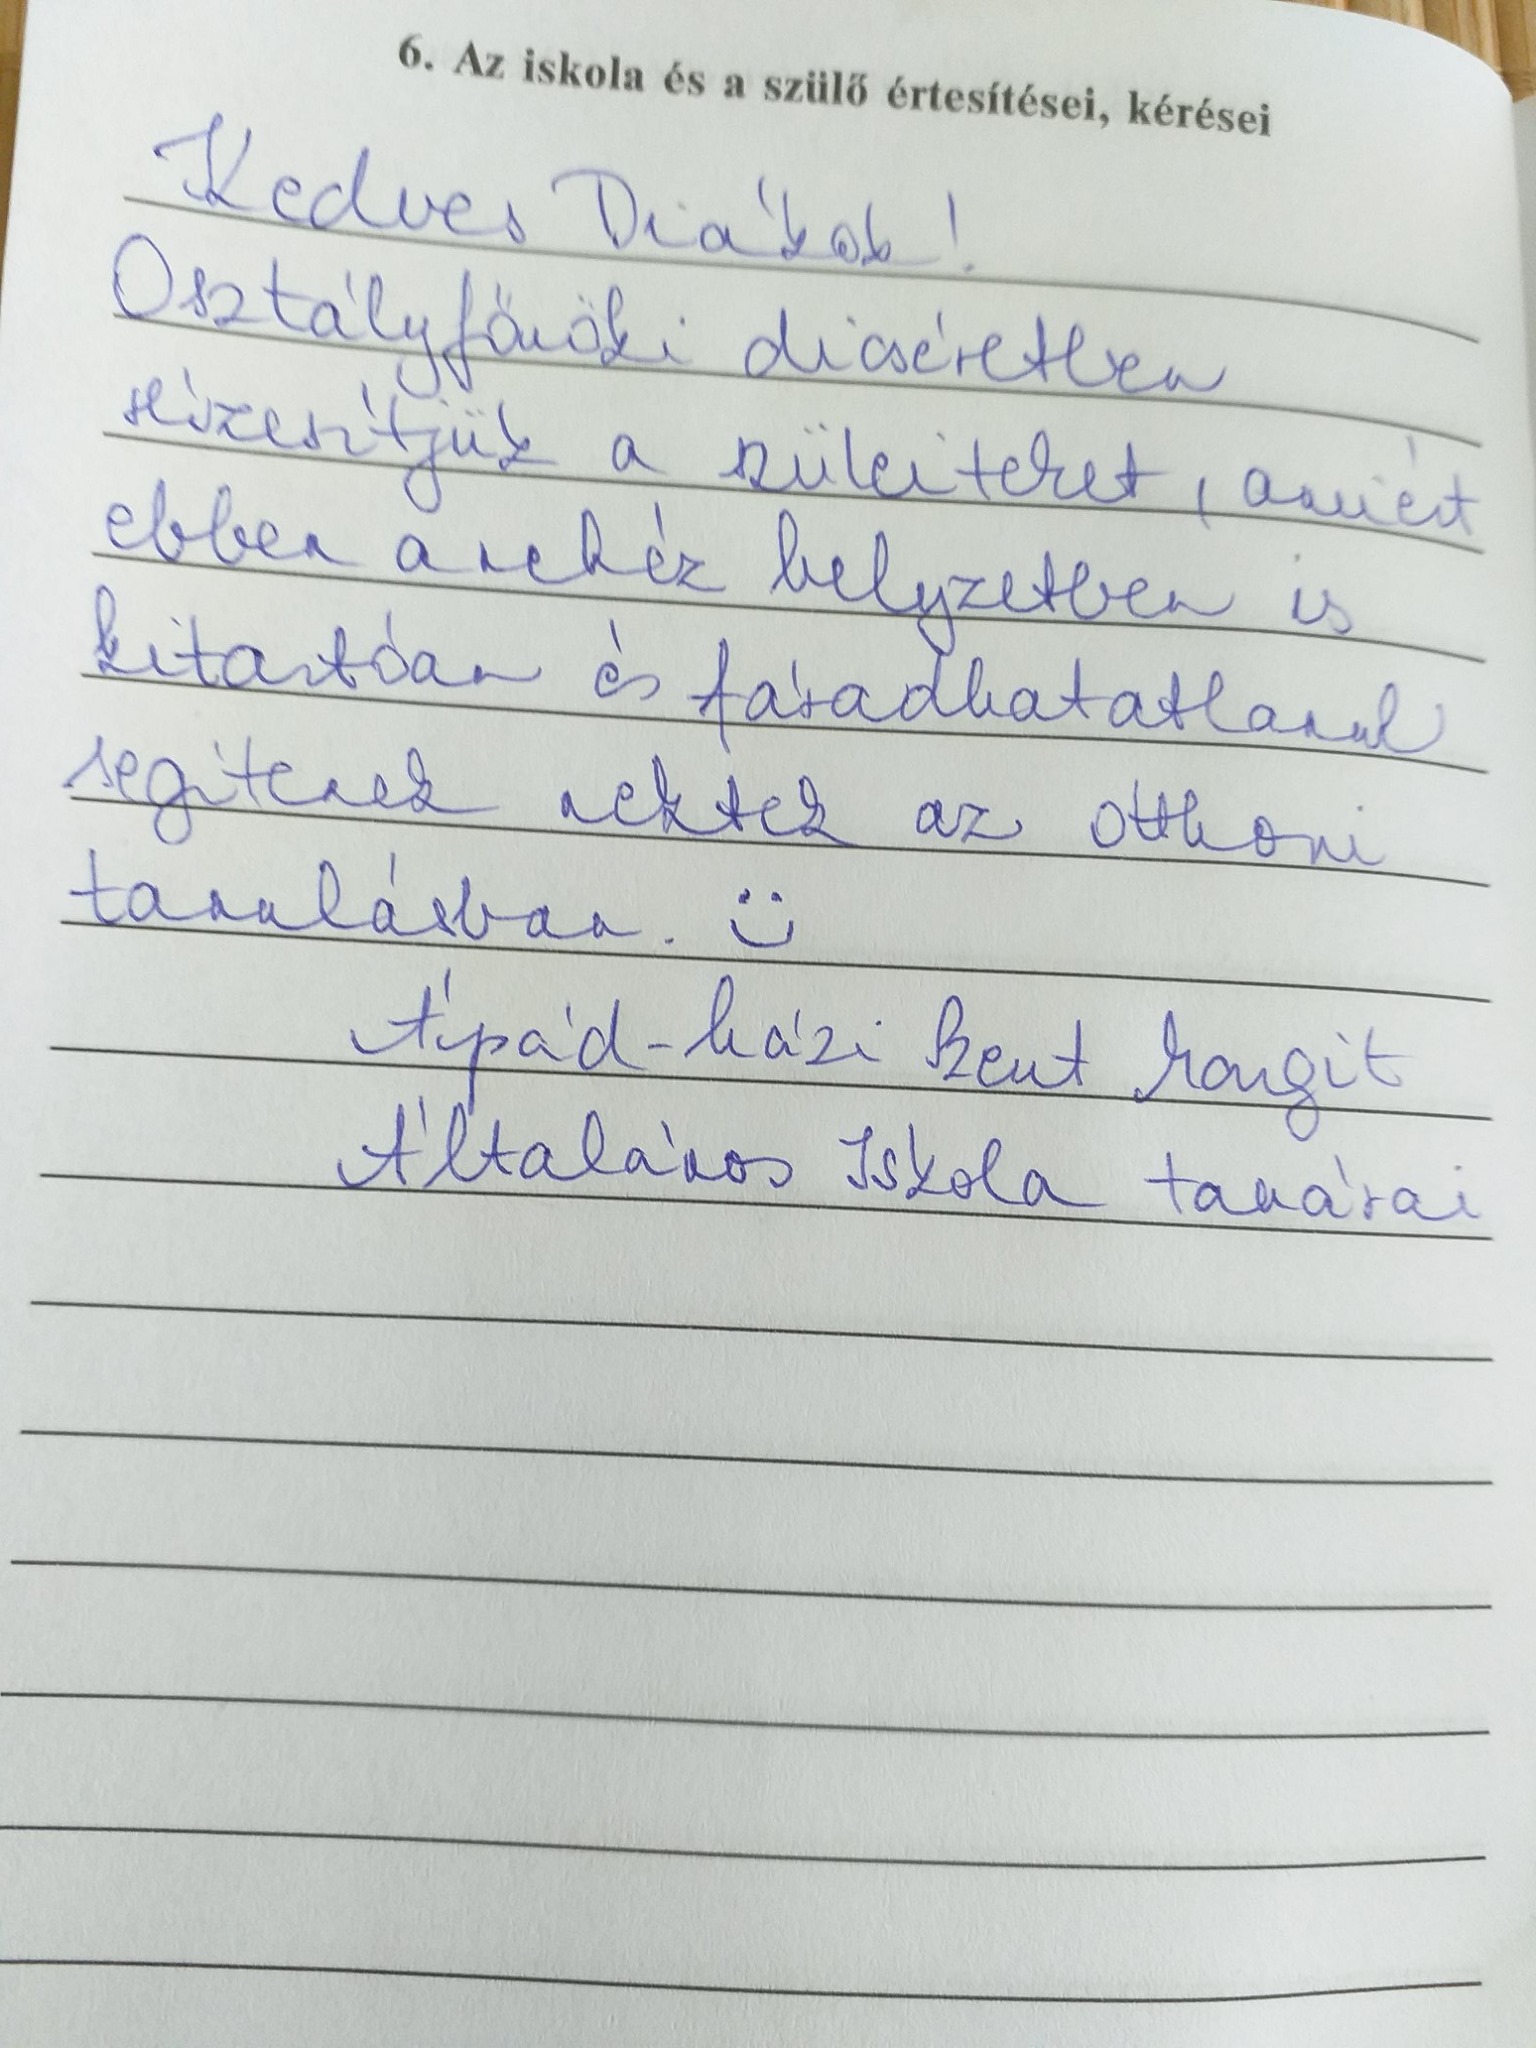 6. Az iskola és a szülő értesítései, kérései
Kedves Diákok!
Osztályfőnöki dicséretben
részesítjük a szüleiteket, amiért
ebben a nehéz helyzetben is
kitartóan és fáradhatatlanul
segítenek nektek az otthoni
tanulásban. :)
Árpád-házi Szent Margit
Általános Iskola tanárai